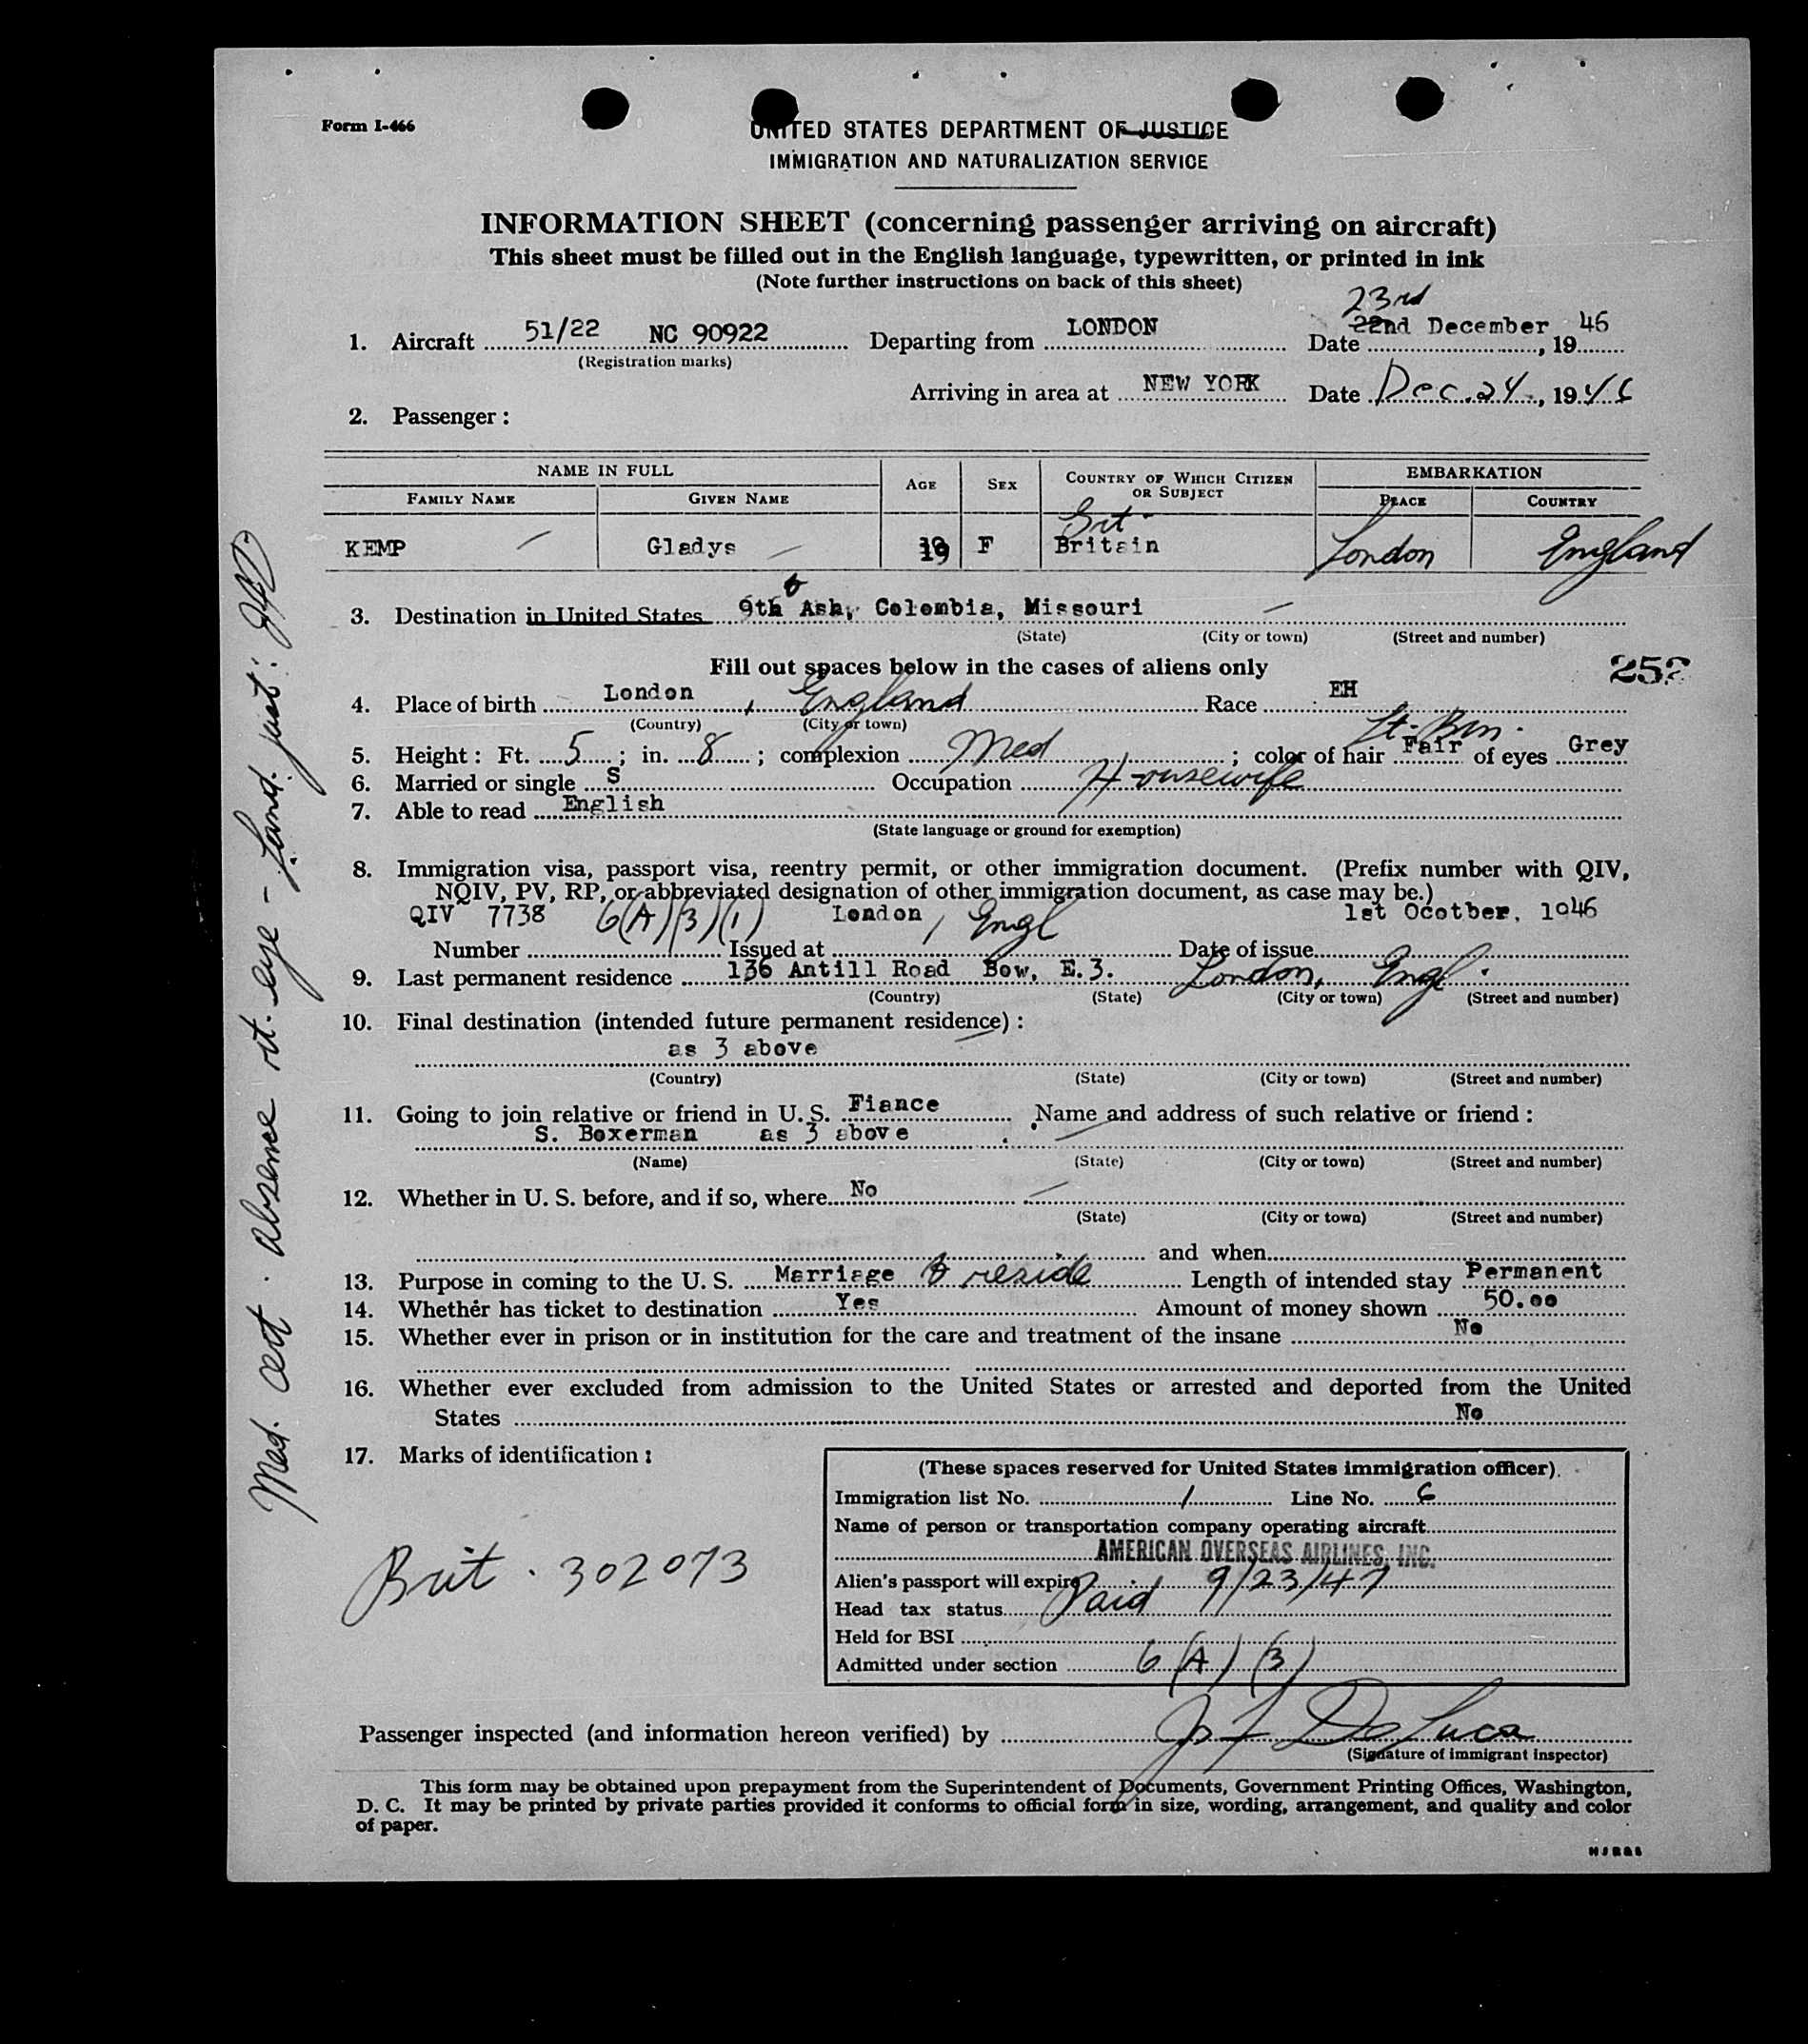 Form I-466
UNITED STATES DEPARTMENT OF JUSTICE
IMMIGRATION AND NATURALIZATION SERVICE
INFORMATION SHEET (concerning passenger arriving on aircraft)
This sheet must be filled out in the English language, typewritten, or printed in ink
(Note further instructions on back of this sheet)
23rd
1. Aircraft 51/22 NC 90922 Departing from LONDON Date 22nd December, 1946
(Registration marks)
Arriving in area at NEW YORK Date Dec. 24, 1946
2. Passenger:
NAME IN FULL AGE SEX COUNTRY OF WHICH CITIZEN OR SUBJECT EMBARKATION
FAMILY NAME GIVEN NAME PLACE COUNTRY
KEMP Gladys 19 F Brit. Britain London England
3. Destination in United States 9th & Ash, Colombia, Missouri
(State) (City or town) (Street and number)
Fill out spaces below in the cases of aliens only
4. Place of birth London, England Race EH
(Country) (City or town)
Lt. Brn.
5. Height: Ft. 5; in. 8; complexion Med; color of hair Fair of eyes Grey
6. Married or single S Occupation Housewife
7. Able to read English
(State language or ground for exemption)
8. Immigration visa, passport visa, reentry permit, or other immigration document. (Prefix number with QIV,
NQIV, PV, RP, or abbreviated designation of other immigration document, as case may be.)
QIV 7738 6(A)(3)(1) London, Engl 1st Ocotber, 1946
Number Issued at Date of issue
9. Last permanent residence 136 Antill Road Bow, E.3. London, Engl.
(Country) (State) (City or town) (Street and number)
10. Final destination (intended future permanent residence):
as 3 above
(Country) (State) (City or town) (Street and number)
11. Going to join relative or friend in U. S. Fiance Name and address of such relative or friend:
S. Boxerman as 3 above
(Name) (State) (City or town) (Street and number)
12. Whether in U. S. before, and if so, where No
(State) (City or town) (Street and number)
and when
13. Purpose in coming to the U. S. Marriage & reside Length of intended stay Permanent
14. Whether has ticket to destination Yes Amount of money shown 50.00
15. Whether ever in prison or in institution for the care and treatment of the insane No
16. Whether ever excluded from admission to the United States or arrested and deported from the United
States No
17. Marks of identification:
Brit. 302073
(These spaces reserved for United States immigration officer)
Immigration list No. 1 Line No. 6
Name of person or transportation company operating aircraft
AMERICAN OVERSEAS AIRLINES, INC.
Alien's passport will expire 9/23/47
Head tax status Paid
Held for BSI
Admitted under section 6(A)(3)
Passenger inspected (and information hereon verified) by De Luca
(Signature of immigrant inspector)
This form may be obtained upon prepayment from the Superintendent of Documents, Government Printing Offices, Washington,
D. C. It may be printed by private parties provided it conforms to official form in size, wording, arrangement, and quality and color
of paper.
Med. Cert. absence rt. eye -